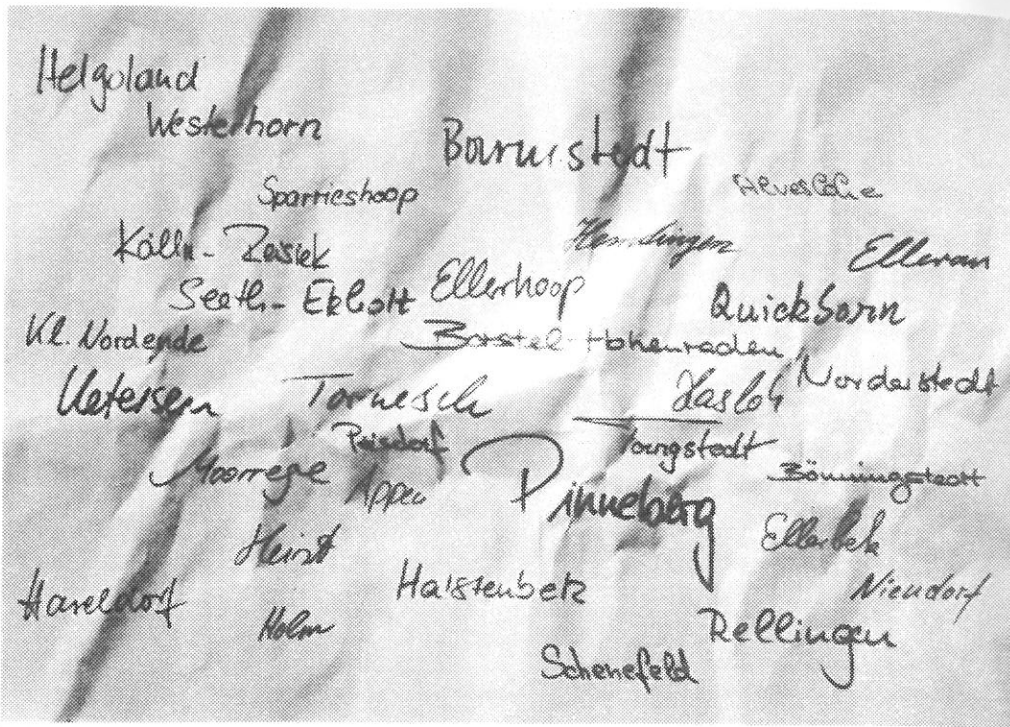 Helgoland
Westerhorn
Barmstedt
Sparrieshoop
Alveslohe
Kölln-Reisiek
Hemdingen
Ellerau
Seeth-Ekholt
Ellerhoop
Quickborn
Kl. Nordende
Borstel-Hohenraden
Uetersen
Tornesch
Hasloh
Norderstedt
Prisdorf
Tangstedt
Moorrege
Appen
Pinneberg
Bönningstedt
Heist
Ellerbek
Haseldorf
Halstenbek
Niendorf
Holm
Rellingen
Schenefeld